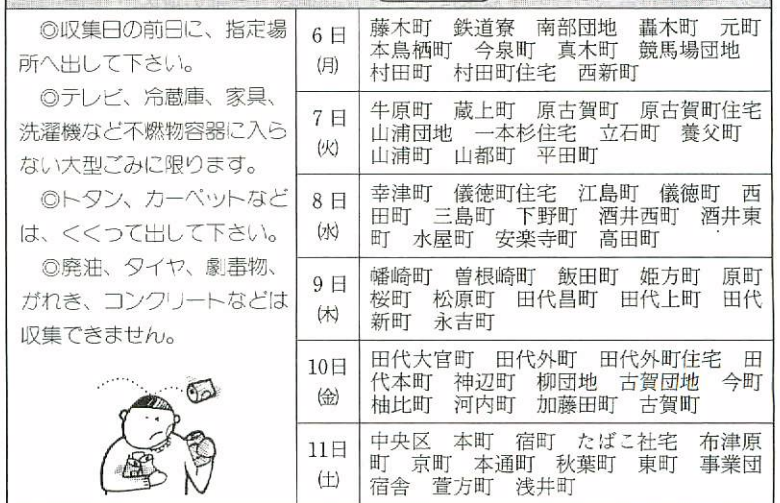 ◎収集日の前日に、指定場
所へ出して下さい。
◎テレビ、冷蔵庫、家具、
洗濯機など不燃物容器に入ら
ない大型ごみに限ります。
◎トタン、カーペットなど
は、くくって出して下さい。
◎廃油、タイヤ、劇毒物、
がれき、コンクリートなどは
収集できません。
6日
(月)
藤木町 鉄道寮 南部団地 轟木町 元町
本鳥栖町 今泉町 真木町 競馬場団地
村田町 村田町住宅 西新町
7日
(火)
牛原町 蔵上町 原古賀町 原古賀町住宅
山浦団地 一本杉住宅 立石町 養父町
山浦町 山都町 平田町
8日
(水)
幸津町 儀徳町住宅 江島町 儀徳町 西
田町 三島町 下野町 酒井西町 酒井東
町 水屋町 安楽寺町 高田町
9日
(木)
幡崎町 曽根崎町 飯田町 姫方町 原町
桜町 松原町 田代昌町 田代上町 田代
新町 永吉町
10日
(金)
田代大官町 田代外町 田代外町住宅 田
代本町 神辺町 柳団地 古賀団地 今町
柚比町 河内町 加藤田町 古賀町
11日
(土)
中央区 本町 宿町 たばこ社宅 布津原
町 京町 本通町 秋葉町 東町 事業団
宿舎 萱方町 浅井町